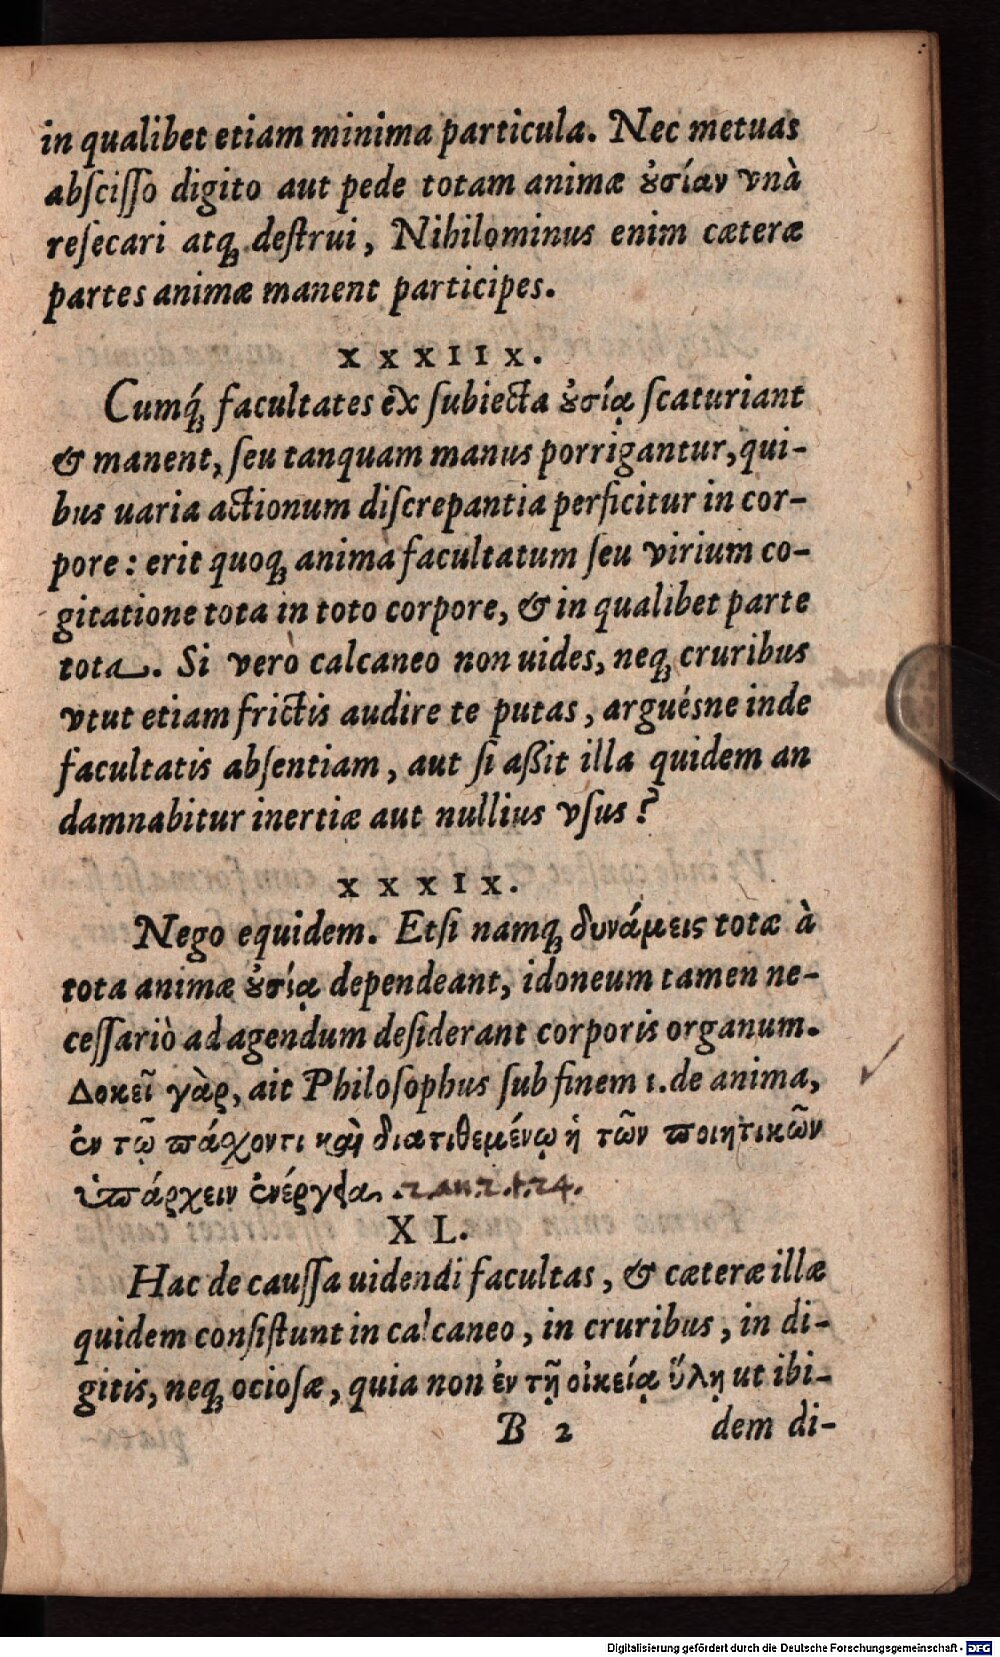 in qualibet etiam minima particula. Nec metuas
abscisso digito aut pede totam animæ ȣ̓σίαν vnà
resecari atq; destrui, Nihilominus enim cæteræ
partes animæ manent participes.
XXXIIX.
Cumq́; facultates ex subiecta ȣ̓σίᾳ scaturiant
& manent, seu tanquam manus porrigantur, qui-
bus uaria actionum discrepantia perficitur in cor-
pore: erit quoq; anima facultatum seu virium co-
gitatione tota in toto corpore, & in qualibet parte
tota. Si verò calcaneo non uides, neq; cruribus
vtut etiam frictis audire te putas, arguésne inde
facultatis absentiam, aut si aßit illa quidem an
damnabitur inertiæ aut nullius vsus?
XXXIX.
Nego equidem. Etsi namq; δυνάμεις totæ à
tota animæ ȣ̓σίᾳ dependeant, idoneum tamen ne-
cessariò ad agendum desiderant corporis organum.
Δοκεῖ γὰρ, ait Philosophus sub finem 1. de anima,
ἐν τῷ πάχοντι καὶ διατιθεμένῳ ἡ τῶν ποιητικῶν
ὑπάρχειν ἐνέργεια. 2. an. 2. t. 24.
XL.
Hac de caussa uidendi facultas, & cæteræ illæ
quidem consistunt in calcaneo, in cruribus, in di-
gitis, neq; ociosæ, quia non ἐν τῇ οἰκείᾳ ὕλῃ ut ibi-
B 2 dem di-
Digitalisierung gefördert durch die Deutsche Forschungsgemeinschaft - DFG